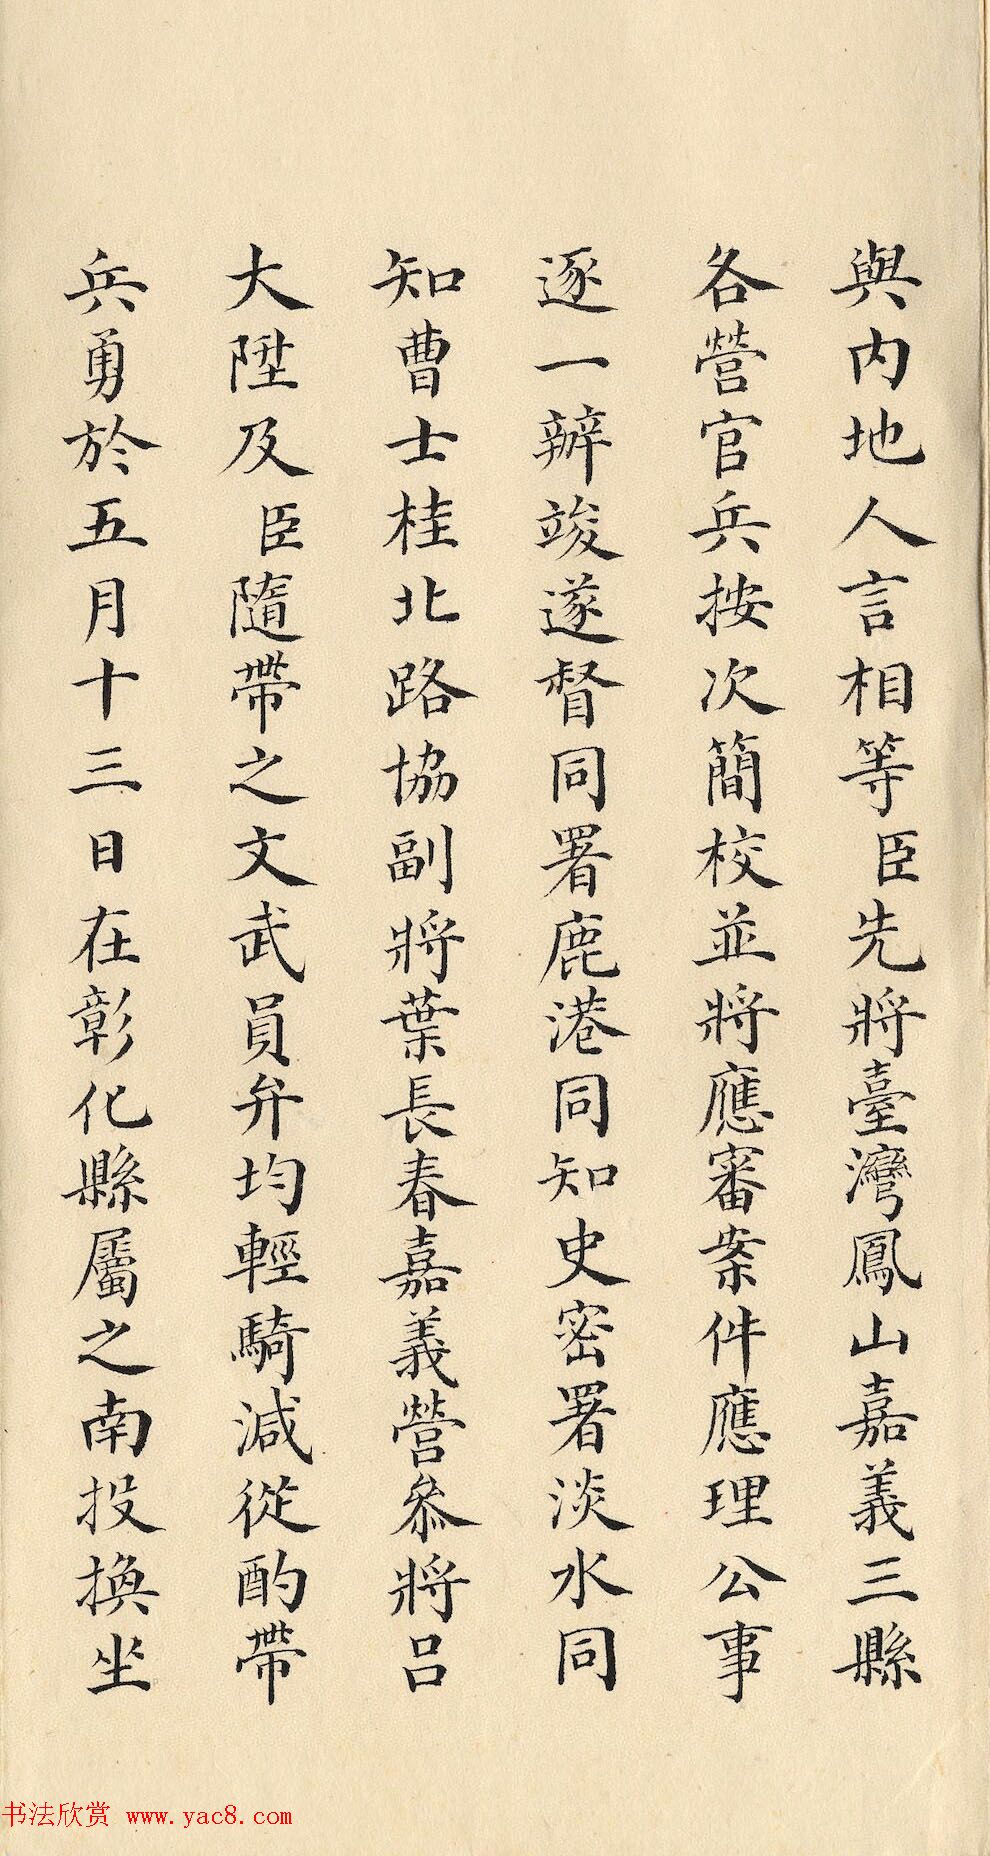 與内地人言相等臣先將臺灣鳳山嘉義三縣
各營官兵按次簡校並將應審案件應理公事
逐一辦竣遂督同署鹿港同知史密署淡水同
知曹士桂北路協副將葉長春嘉義營叅將呂
大陞及臣隨帶之文武員弁均輕騎減從酌帶
兵勇於五月十三日在彰化縣屬之南投換坐
书法欣赏 www.yac8.com